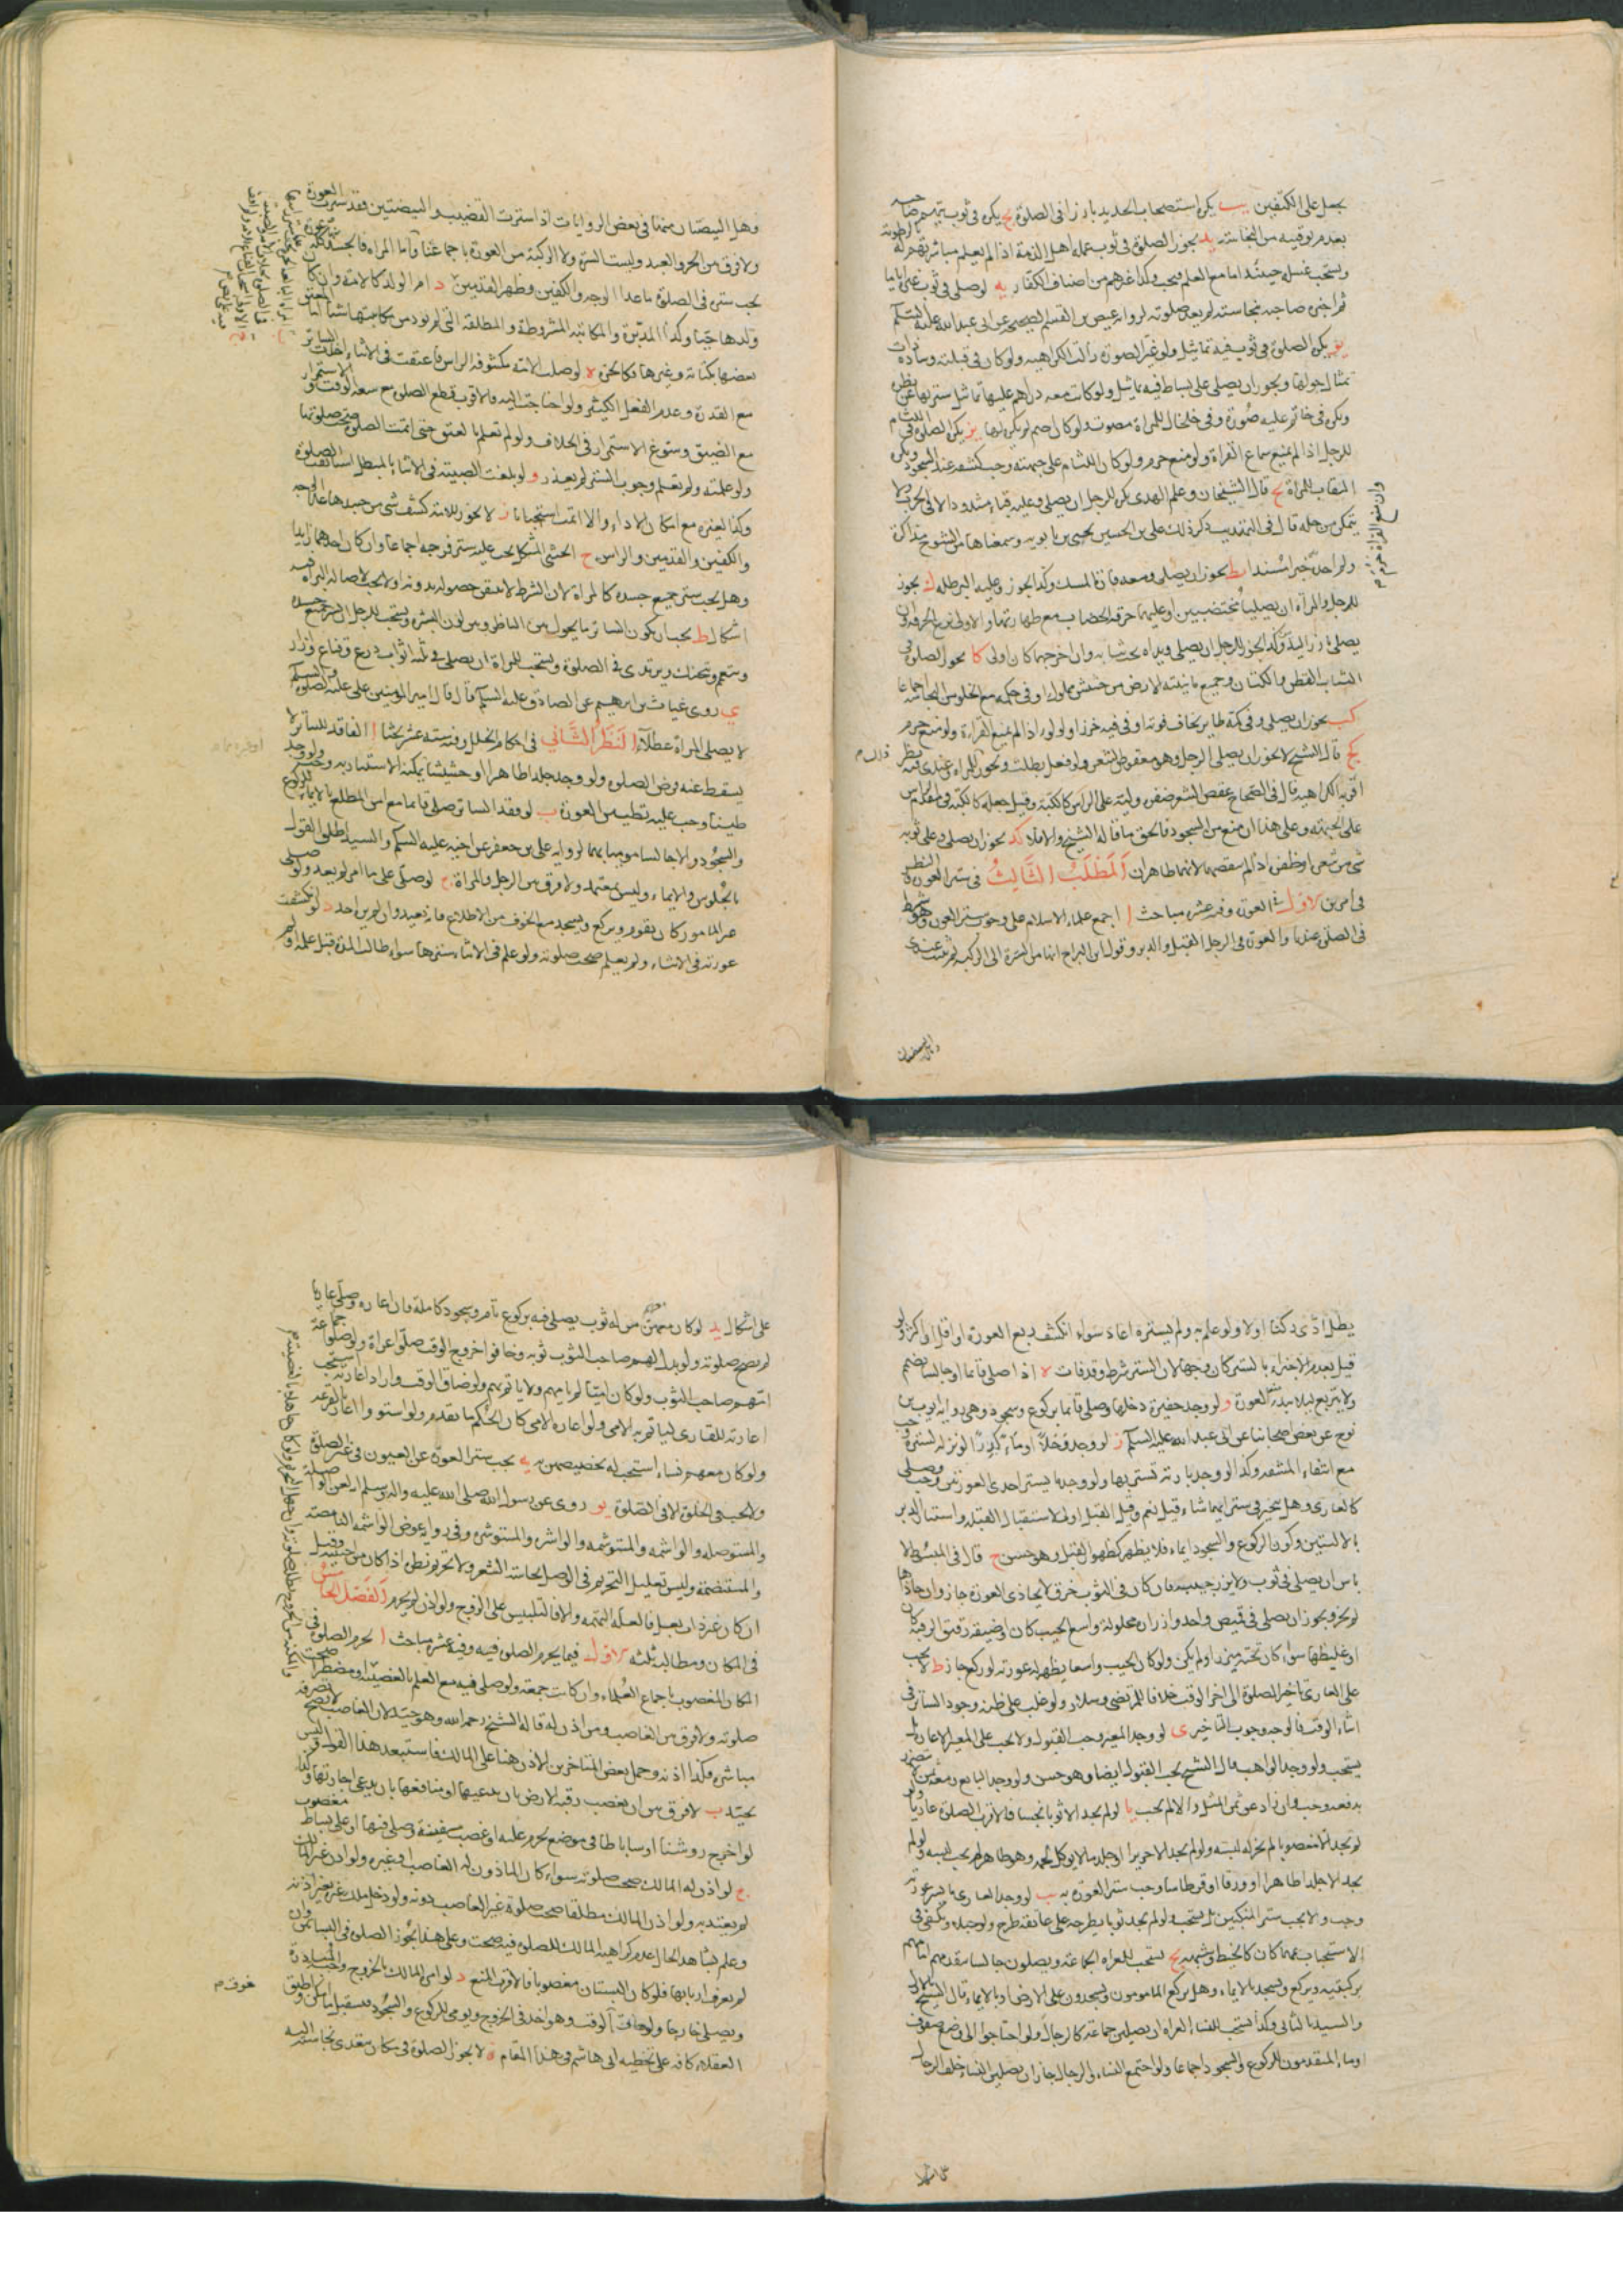 يجعل على الكتفين يب يكره استصحاب الحديد بارزا في الصلوة يج يكره في ثوب يتهم صاحبه
بعدم توقيه من النجاسة يد يجوز الصلوة في ثوب عمله اهل الذمة اذا لم يعلم مباشرتهم له برطوبة
ويستحب غسله حينئذ اما مع العلم فيجب وكذا غيرهم من اصناف الكفار يه لو صلى في ثوب غيره اياما
ثم اخبره صاحبه بنجاسته لم يعد صلوته لرواية عيص بن القسم الصحيحة عن ابي عبد الله عليه السلم
يو يكره الصلوة في ثوب فيه تماثيل ولو غير الصورة زالت الكراهية ولو كان في قبلته وسادة ذات
تمثال حولها ويجوز ان يصلي على بساط فيه تماثيل ولو كانت معه دراهم عليها تماثيل سترها عن نظره
ويكره في خاتم عليه صورة وفي خلخال للمراة مصوت ولو كان اصم لم يكن لها يز يكره الصلوة في اللثام
للرجل اذا لم يمنع سماع القراءة ولو منع حرم ولو كان اللثام على جبهته وجب كشفه عند السجود ويكره
النقاب للمراة يح قال الشيخان وعلم الهدى يكره للرجل ان يصلي وعليه قباء مشدود الا في الحرب ولا
يتمكن من حله قال في التهذيب ذكر ذلك علي بن الحسين بن بابويه وسمعناها من الشيوخ مذاكرة
ولم اجد خبرا مسندا يط يجوز ان يصلي ومعه فارة المسك وكذا يجوز وعليه البرطلة ك يجوز
للرجل والمراة ان يصليا مختضبين او عليهما خرقة الخضاب مع طهارتها والاولى نزع الخرقة وان
يصلي زار اليد وكذا يجوز للرجل ان يصلي ويداه تحت ثيابه وان اخرجهما كان اولى كا يجوز الصلوة في
الثياب القطن والكتان وجميع ما ينبته الارض من حشيش مملوك او في حكمه مع الخلو من النجاسة اجماعا
كب يجوز ان يصلي وفي كمه طاير يخاف فوته او في فيه خرز او لولو اذا لم يمنع القراءة ولو منع حرم
كج قال الشيخ لا يجوز ان يصلي الرجل وهو معقوص الشعر ولو فعل بطلت ويجوز للمراة وعندي فيه نظر
اقربه الكراهية قال في الصحاح عقص الشعر ضفره وليته على الراس كالكبة وقيل جعله كالكبة في مقدم الراس
على الجبهة وعلى هذا ان منع من السجود فالحق ما قاله الشيخ والا فلا كد يجوز ان يصلي وعلى ثوبه
شيء من شعره او ظفره اذا لم ينفضهما لانهما طاهران المطلب الثالث في ستر العورة والنظر
في امرين الاول في العورة وفيه عشر مباحث ا اجمع علماء الاسلام على وجوب ستر العورة وهو شرط
في الصلوة عندنا والعورة في الرجل القبل والدبر وقول ابن البراج انها من السرة الى الركبة لم يثبت عندي
وهل البيضتان منهما في بعض الروايات اذا سترت القضيب والبيضتين فقد سترت العورة
ولا فرق بين الحر والعبد وليست السرة ولا الركبة من العورة باجماعنا
يجب ستره في الصلوة ما عدا الوجه والكفين وظهر القدمين د ام الولد كالامة وان كان
ولدها حيا وكذا المدبرة والمكاتبة المشروطة والمطلقة التي لم تود من مكاتبتها شيئا
بعضها بكتابة وغيرها فكالحرة ه لو صلت الامة مكشوفة الراس فاعتقت في الاثناء
مع القدرة وعدم الفعل الكثير ولو احتاجت اليه فالاقرب قطع الصلوة مع سعة الوقت والاستمرار
مع الضيق وسوغ الاستمرار في الخلاف ولو لم تعلم بالعتق حتى اتمت الصلوة صحت صلوتها
ولو علمته ولم تعلم وجوب الستر لم يعذر و لو بلغت الصبية في الاثناء بالمبطل استانفت الصلوة
وكذا بغيره مع امكان الاداء والا اتمت استحبابا ز لا يجوز للامة كشف شيء من جسدها عدا الوجه
والكفين والقدمين والراس ح الخنثى المشكل يجب عليه ستر فرجيه اجماعا وان كان احدهما زايدا
وهل يجب ستر جميع جسده كالمراة لان الشرط لا يتيقن حصوله بدونه او لا يجب لاصالة البراءة فيه
اشكال ط يجب ان يكون الساتر ما يحول بين الناظر وبين لون البشرة ويستحب للرجل ان يستر جميع جسده
ويتعمم ويتحنك ويرتدي في الصلوة ويستحب للمراة ان يصلي في ثلثة اثواب درع وقناع وازار
ي روى غياث بن ابرهيم عن الصادق عليه السلم قال قال امير المؤمنين علي عليه الصلوة والسلم
لا يصلي المراة عطلا النظر الثاني في احكام الخلل وفيه ستة عشر بحثا ا الفاقد للساتر لا
يسقط عنه فرض الصلوة ولو وجد جلدا طاهرا او حشيشا يمكنه الاستتار به وجب ولو وجد
طينا وجب عليه تطيين العورة ب لو فقد الساتر صلى قائما مع امن المطلع بالايماء للركوع
والسجود والا جالسا موميا بهما لرواية علي بن جعفر عن اخيه عليه السلم والسيد اطلق القول
بالجلوس والايماء وليس بمعتمد ولا فرق بين الرجل والمراة ج لو صلى على ما امر لم يعد ولو صلى
غير المامور كان يقوم ويركع ويسجد مع الخوف من الاطلاع فانه يعيد وان لم يره احد د لو انكشفت
عورته في الاثناء ولم يعلم صحت صلوته ولو علم في الاثناء سترها سواء طالت المدة قبل علمه او لم
يطل ادى ركنا او لا ولو علم به ولم يستره اعاد سواء انكشف ربع العورة او اقل او اكثر ولو
قيل بعدم الاجتزاء بالستر كان وجها لان الستر شرط وقد فات ه اذا صلى قائما او جالسا يضم
ولا يتربع ليلا تبدو العورة و لو وجد حفيرة دخلها وصلى قائما بركوع وسجود وهي رواية ايوب بن
نوح عن بعض اصحابنا عن ابي عبد الله عليه السلم ز لو وجد وحلا او ماء كدرا لو نزله لستره وجب
مع انتفاء المشقة وكذا لو وجد بارية تستر بها ولو وجد ما يستر احدى العورتين وجب وصلى
كالعاري وهل يتخير في ستر ايهما شاء قيل نعم وقيل القبل اولى لاستقبال القبلة واستتار الدبر
بالاليتين وكون الركوع والسجود ايماء فلا يظهر كظهور القبل وهو حسن ح قال في المبسوط لا
باس ان يصلي في ثوب ولا يزر جيبه فان كان في الثوب خرق لا يحاذي العورة جاز وان حاذاها
لم يجز ويجوز ان يصلي في قميص واحد وازراره محلولة واسع الجيب كان او ضيقه دقيق الرقبة كان
او غليظها سواء كان تحته ميزر او لم يكن ولو كان الجيب واسعا يظهر له عورته لو ركع جاز ط لا يجب
على العاري تاخير الصلوة الى اخر الوقت خلافا للمرتضى وسلار ولو غلب على ظنه وجود الساتر في
اثناء الوقت فالوجه وجوب التاخير ي لو وجد المعير وجب القبول ولا يجب على المعير الاعارة بل
يستحب ولو وجد الواهب قال الشيخ يجب القبول ايضا وهو حسن ولو وجد البايع ومعه ثمن لا يتضرر
بدفعه وجب وان زاد عن ثمن المثل والا لم يجب يا لو لم يجد الا ثوبا نجسا فالاقرب الصلوة عاريا ولو
لم يجد الا مغصوبا لم يجز له لبسه ولو لم يجد الا حريرا او جلد ما لا يوكل لحمه وهو طاهر لم يجب لبسه ولو لم
يجد الا جلدا طاهرا او ورقا او قرطاسا وجب ستر العورة به يب لو وجد العاري ما يستر عورته
وجب ولا يجب ستر المنكبين بل يستحب ولو لم يجد ثوبا يطرحه على عاتقه طرح ولو حبلا ويكفي في
الاستحباب مهما كان كالخيط وشبهه يج يستحب للعراة الجماعة ويصلون جالسا يتقدمهم امامهم
بركبتيه ويركع ويسجد بالايماء وهل يركع المامومون ويسجدون على الارض او بالايماء قال الشيخ بالاول
والسيد بالثاني وكذا يستحب للنساء العراة ان يصلين جماعة كالرجال ولو احتاجوا الى وضع صفوف
اوماء المتقدمون للركوع والسجود اجماعا ولو اجتمع النساء والرجال جاز ان يصلين النساء خلف الرجال
على اشكال يد لو كان معهم من له ثوب يصلي فيه بركوع تام وسجود كاملة فان اعاره وصلى عاريا
لم يصح صلوته ولو بذل لهم صاحب الثوب ثوبه وخافوا خروج الوقت صلوا عراة ولو صلوا جماعة
امهم صاحب الثوب ولو كان اميا لم يامهم ولا ياتم بهم ولو ضاق الوقت واراد اعارته يستحب
اعارته للقاري لياتم به الامي ولو اعاره الامي كان الحكم ما تقدم ولو استووا اعار بالقرعة
ولو كان معهم نساء استحب له تخصيصهن به يه يجب ستر العورة عن العيون في غير الصلوة
ولا يجب في الخلوة الا في الصلوة يو روى عن رسول الله صلى الله عليه واله وسلم لعن الواصلة
والمستوصلة والواشمة والمستوشمة والواشرة والمستوشرة وفي رواية عوض الواشمة النامصة
والمستنمصة وليس تعليل التحريم في الوصل نجاسة الشعر ولا تحريم نظره اذا كان من اجنبية وقيل
ان كان غير ذات بعل فالعلة التهمة والا فالتلبيس على الزوج ولو اذن لم يحرم الفصل الخامس
في المكان ومطالبه ثلثة الاول فيما يحرم الصلوة فيه وفيه عشر مباحث ا تحرم الصلوة في
المكان المغصوب باجماع العلماء وان كانت جمعة ولو صلى فيه مع العلم بالغصبية او مضطرا صحت
صلوته ولا فرق بين الغاصب ومن اذن له قاله الشيخ رحمه الله وهو جيد لان الغاصب لا يصح تصرفه
مباشرة وكذا اذنه وحمل بعض المتاخرين الاذن هنا على المالك فاستبعد هذا القول وليس
بجيد ب لا فرق بين ان يغصب رقبة الارض بان يدعيها او منافعها بان يدعي اجارتها وكذا
لو اخرج روشنا او ساباطا في موضع يحرم عليه او غصب سفينة وصلى فيها او على بساط مغصوب
ج لو اذن له المالك صحت صلوته سواء كان الماذون له الغاصب او غيره ولو اذن غير المالك
لم يعتد به ولو اذن المالك مطلقا صحت صلوة غير الغاصب دونه ولو دخل ملك غيره بغير اذنه
وعلم بشاهد الحال عدم كراهية المالك للصلوة فيه صحت وعلى هذا يجوز الصلوة في البساتين وان
لم يعرف اربابها فلو كان البستان مغصوبا فالاقرب المنع د لو امره المالك بالخروج وجب المبادرة
ويصلي خارجا ولو ضاق الوقت وهو اخذ في الخروج ويومي للركوع والسجود مستقبل ما امكن واطبق
العقلاء كافة على تخطية ابي هاشم في هذا المقام ه لا يجوز الصلوة في مكان يتعدى نجاسته اليه